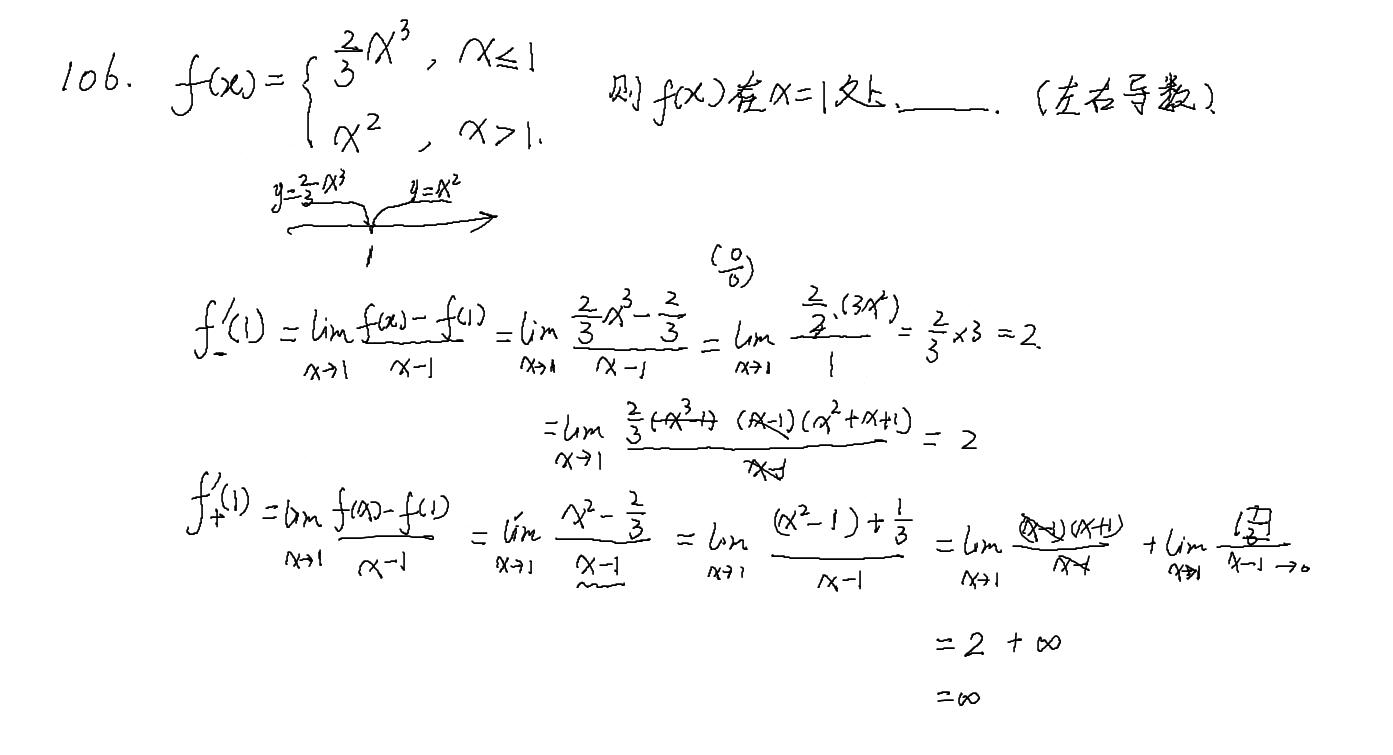 106. f(x)={ 2/3 x³, x≤1 则f(x)在x=1处______. (左右导数).
x², x>1.
y=2/3 x³ y=x²
1
(0/0)
f₋'(1) = lim x→1 (f(x)-f(1))/(x-1) = lim x→1 (2/3 x³ - 2/3)/(x-1) = lim x→1 (2/3·(3x²))/1 = 2/3 ×3 = 2.
= lim x→1 (2/3 (x³-1) (x-1)(x²+x+1))/(x-1) = 2
f₊'(1) = lim x→1 (f(x)-f(1))/(x-1) = lim x→1 (x² - 2/3)/(x-1) = lim x→1 ((x²-1)+1/3)/(x-1) = lim x→1 ((x-1)(x+1))/(x-1) + lim x→1 (1/3)/(x-1) →0
= 2 + ∞
= ∞